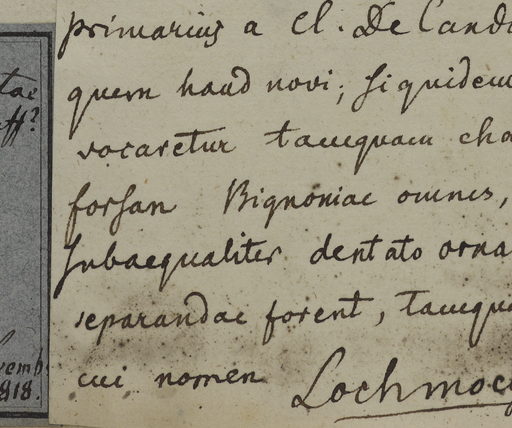 primarius a Cl. De Cando
quem haud novi; siquidem
vocaretur tamquam cha
forsan Bignoniae omnes,
subaequaliter dentato orna
separandae forent, tamqua
cui nomen Lochmocy
tae
ff?
vemb.
1818.